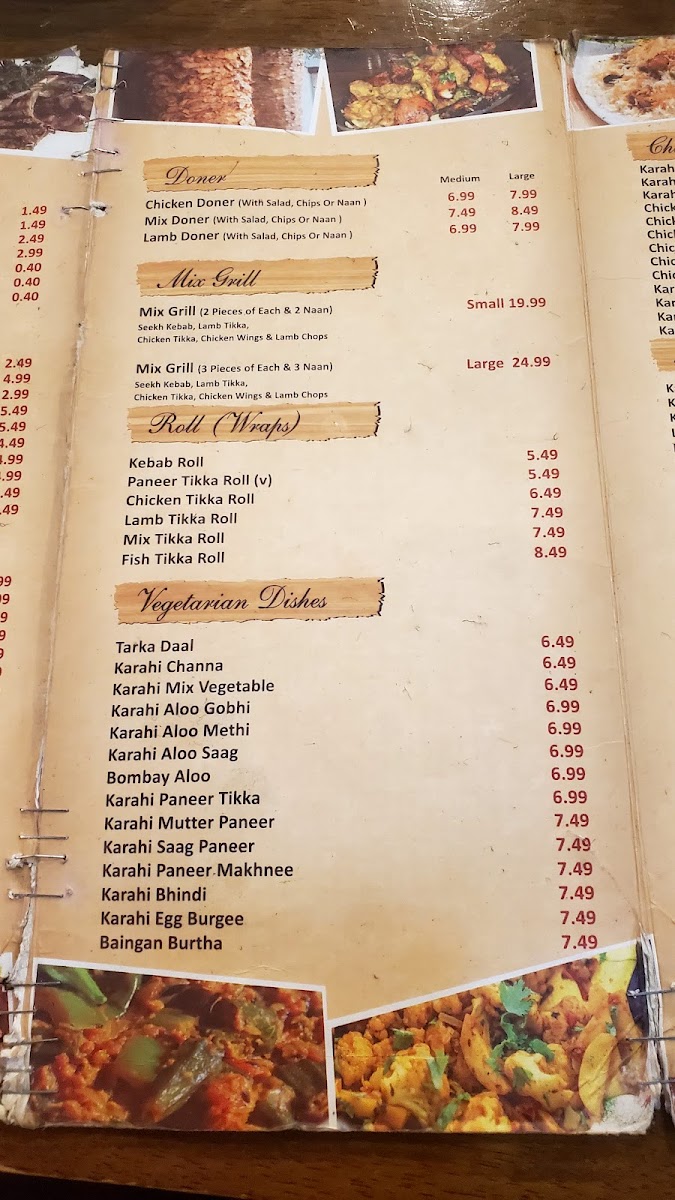 1.49
1.49
2.49
2.99
0.40
0.40
0.40
2.49
4.99
2.99
5.49
5.49
4.49
4.99
.99
.49
.49
99
99
9
9
9
Doner
Medium Large
Chicken Doner (With Salad, Chips Or Naan ) 6.99 7.99
Mix Doner (With Salad, Chips Or Naan ) 7.49 8.49
Lamb Doner (With Salad, Chips Or Naan ) 6.99 7.99
Mix Grill
Mix Grill (2 Pieces of Each & 2 Naan) Small 19.99
Seekh Kebab, Lamb Tikka,
Chicken Tikka, Chicken Wings & Lamb Chops
Mix Grill (3 Pieces of Each & 3 Naan) Large 24.99
Seekh Kebab, Lamb Tikka,
Chicken Tikka, Chicken Wings & Lamb Chops
Roll (Wraps)
Kebab Roll 5.49
Paneer Tikka Roll (v) 5.49
Chicken Tikka Roll 6.49
Lamb Tikka Roll 7.49
Mix Tikka Roll 7.49
Fish Tikka Roll 8.49
Vegetarian Dishes
Tarka Daal 6.49
Karahi Channa 6.49
Karahi Mix Vegetable 6.49
Karahi Aloo Gobhi 6.99
Karahi Aloo Methi 6.99
Karahi Aloo Saag 6.99
Bombay Aloo 6.99
Karahi Paneer Tikka 6.99
Karahi Mutter Paneer 7.49
Karahi Saag Paneer 7.49
Karahi Paneer Makhnee 7.49
Karahi Bhindi 7.49
Karahi Egg Burgee 7.49
Baingan Burtha 7.49
Ch
Karah
Karah
Karah
Chick
Chick
Chick
Chic
Chic
Chic
Kar
Kar
Ka
Ka